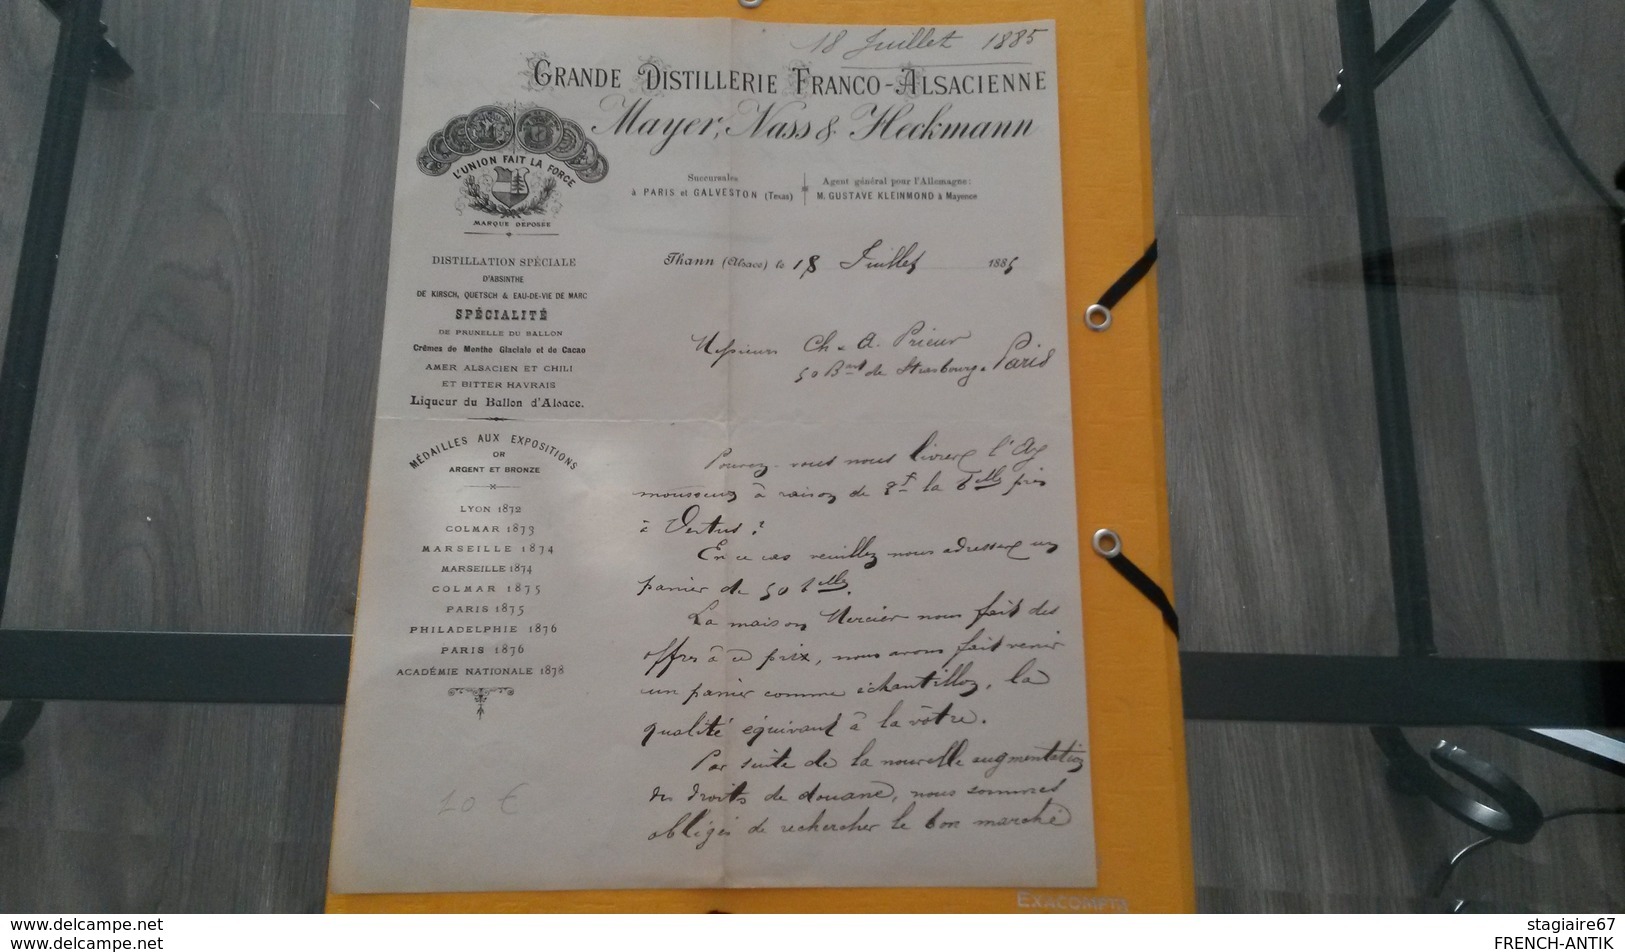 18 Juillet 1885
GRANDE DISTILLERIE FRANCO-ALSACIENNE
Mayer, Nass & Heckmann
L'UNION FAIT LA FORCE
MARQUE DEPOSÉE
Succursales
à PARIS et GALVESTON (Texas)
Agent général pour l'Allemagne:
M. GUSTAVE KLEINMOND à Mayence
Thann (Alsace) le 18 Juillet 1885
DISTILLATION SPÉCIALE
D'ABSINTHE
DE KIRSCH, QUETSCH & EAU-DE-VIE DE MARC
SPÉCIALITÉ
DE PRUNELLE DU BALLON
Crêmes de Menthe Glaciale et de Cacao
AMER ALSACIEN ET CHILI
ET BITTER HAVRAIS
Liqueur du Ballon d'Alsace.
MÉDAILLES AUX EXPOSITIONS
OR
ARGENT ET BRONZE
LYON 1872
COLMAR 1873
MARSEILLE 1874
MARSEILLE 1874
COLMAR 1875
PARIS 1875
PHILADELPHIE 1876
PARIS 1876
ACADÉMIE NATIONALE 1878
10 €
Messieurs Ch & A. Prieur
50 Bard de Strasbourg. Paris
Pouvez-vous nous livrer l'Ay
mousseux à raison de 2f la Blle pris
à Vertus?
En ce cas veuillez nous adresser un
panier de 50 blles.
La maison Mercier nous fait des
offres à ce prix, nous avons fait venir
un panier comme échantillon, la
qualité équivaut à la vôtre.
Par suite de la nouvelle augmentation
des droits de douane, nous sommes
obligés de rechercher le bon marché
EXACOMPTA
www.delcampe.net
www.delcampe.net
stagiaire67
FRENCH-ANTIK